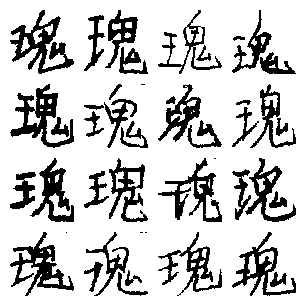 瑰瑰瑰瑰
瑰瑰瑰瑰
瑰瑰瑰瑰
瑰瑰瑰瑰